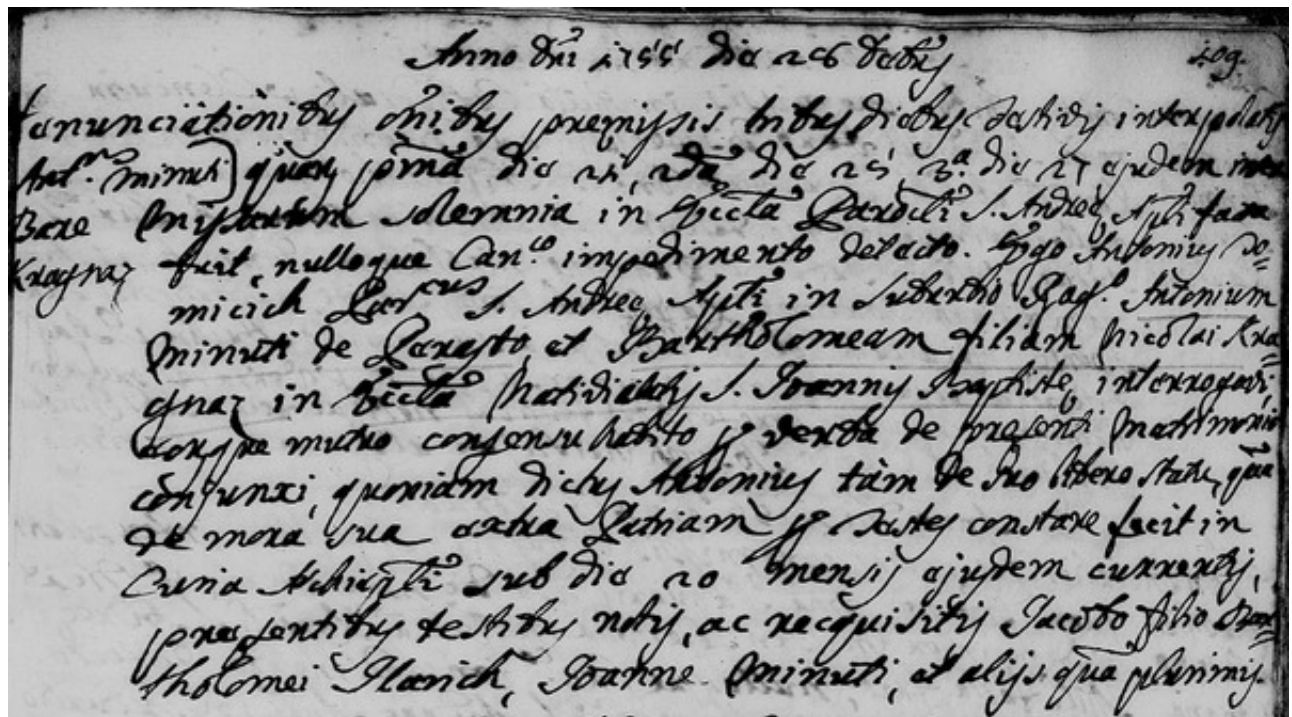 Anno Dni 1755 die 28 8bris 109.
Denunciationibus omibus premissis tribus diebus festivis interpolatis
Ant.s Minuti quar pma die 2da die 25, 3.a die 27 ejusdem inter
Bare Missarum solemnia in Eccla Parocli S. Andreę Apli facta
Kragnaz fuit, nulloque Can.co impedimento detecto. Ego Antonius Do=
micich Par.cus S. Andreę Apli in suburbio Rag.o Antonium
Minuti de Perasto, et Bartholomeam filiam Nicolai Kra=
gnaz in Eccla Natividatis S. Joannis Baptistę, interrogavi,
eorque mutuo consensu habito p verba de presenti Matrimonio
conjunxi, quoniam dictus Antonius tàm de suo libero statu, quã
de mora sua extra Patriam p testes constare fecit in
Curia Achiepli sub die 20 mensis ejusdem currentis,
presentibus testibus notis, ac requisitis Jacobo filio Bar=
tholomei Ilarich, Joanne Minuti, et alijs quã plurimis.